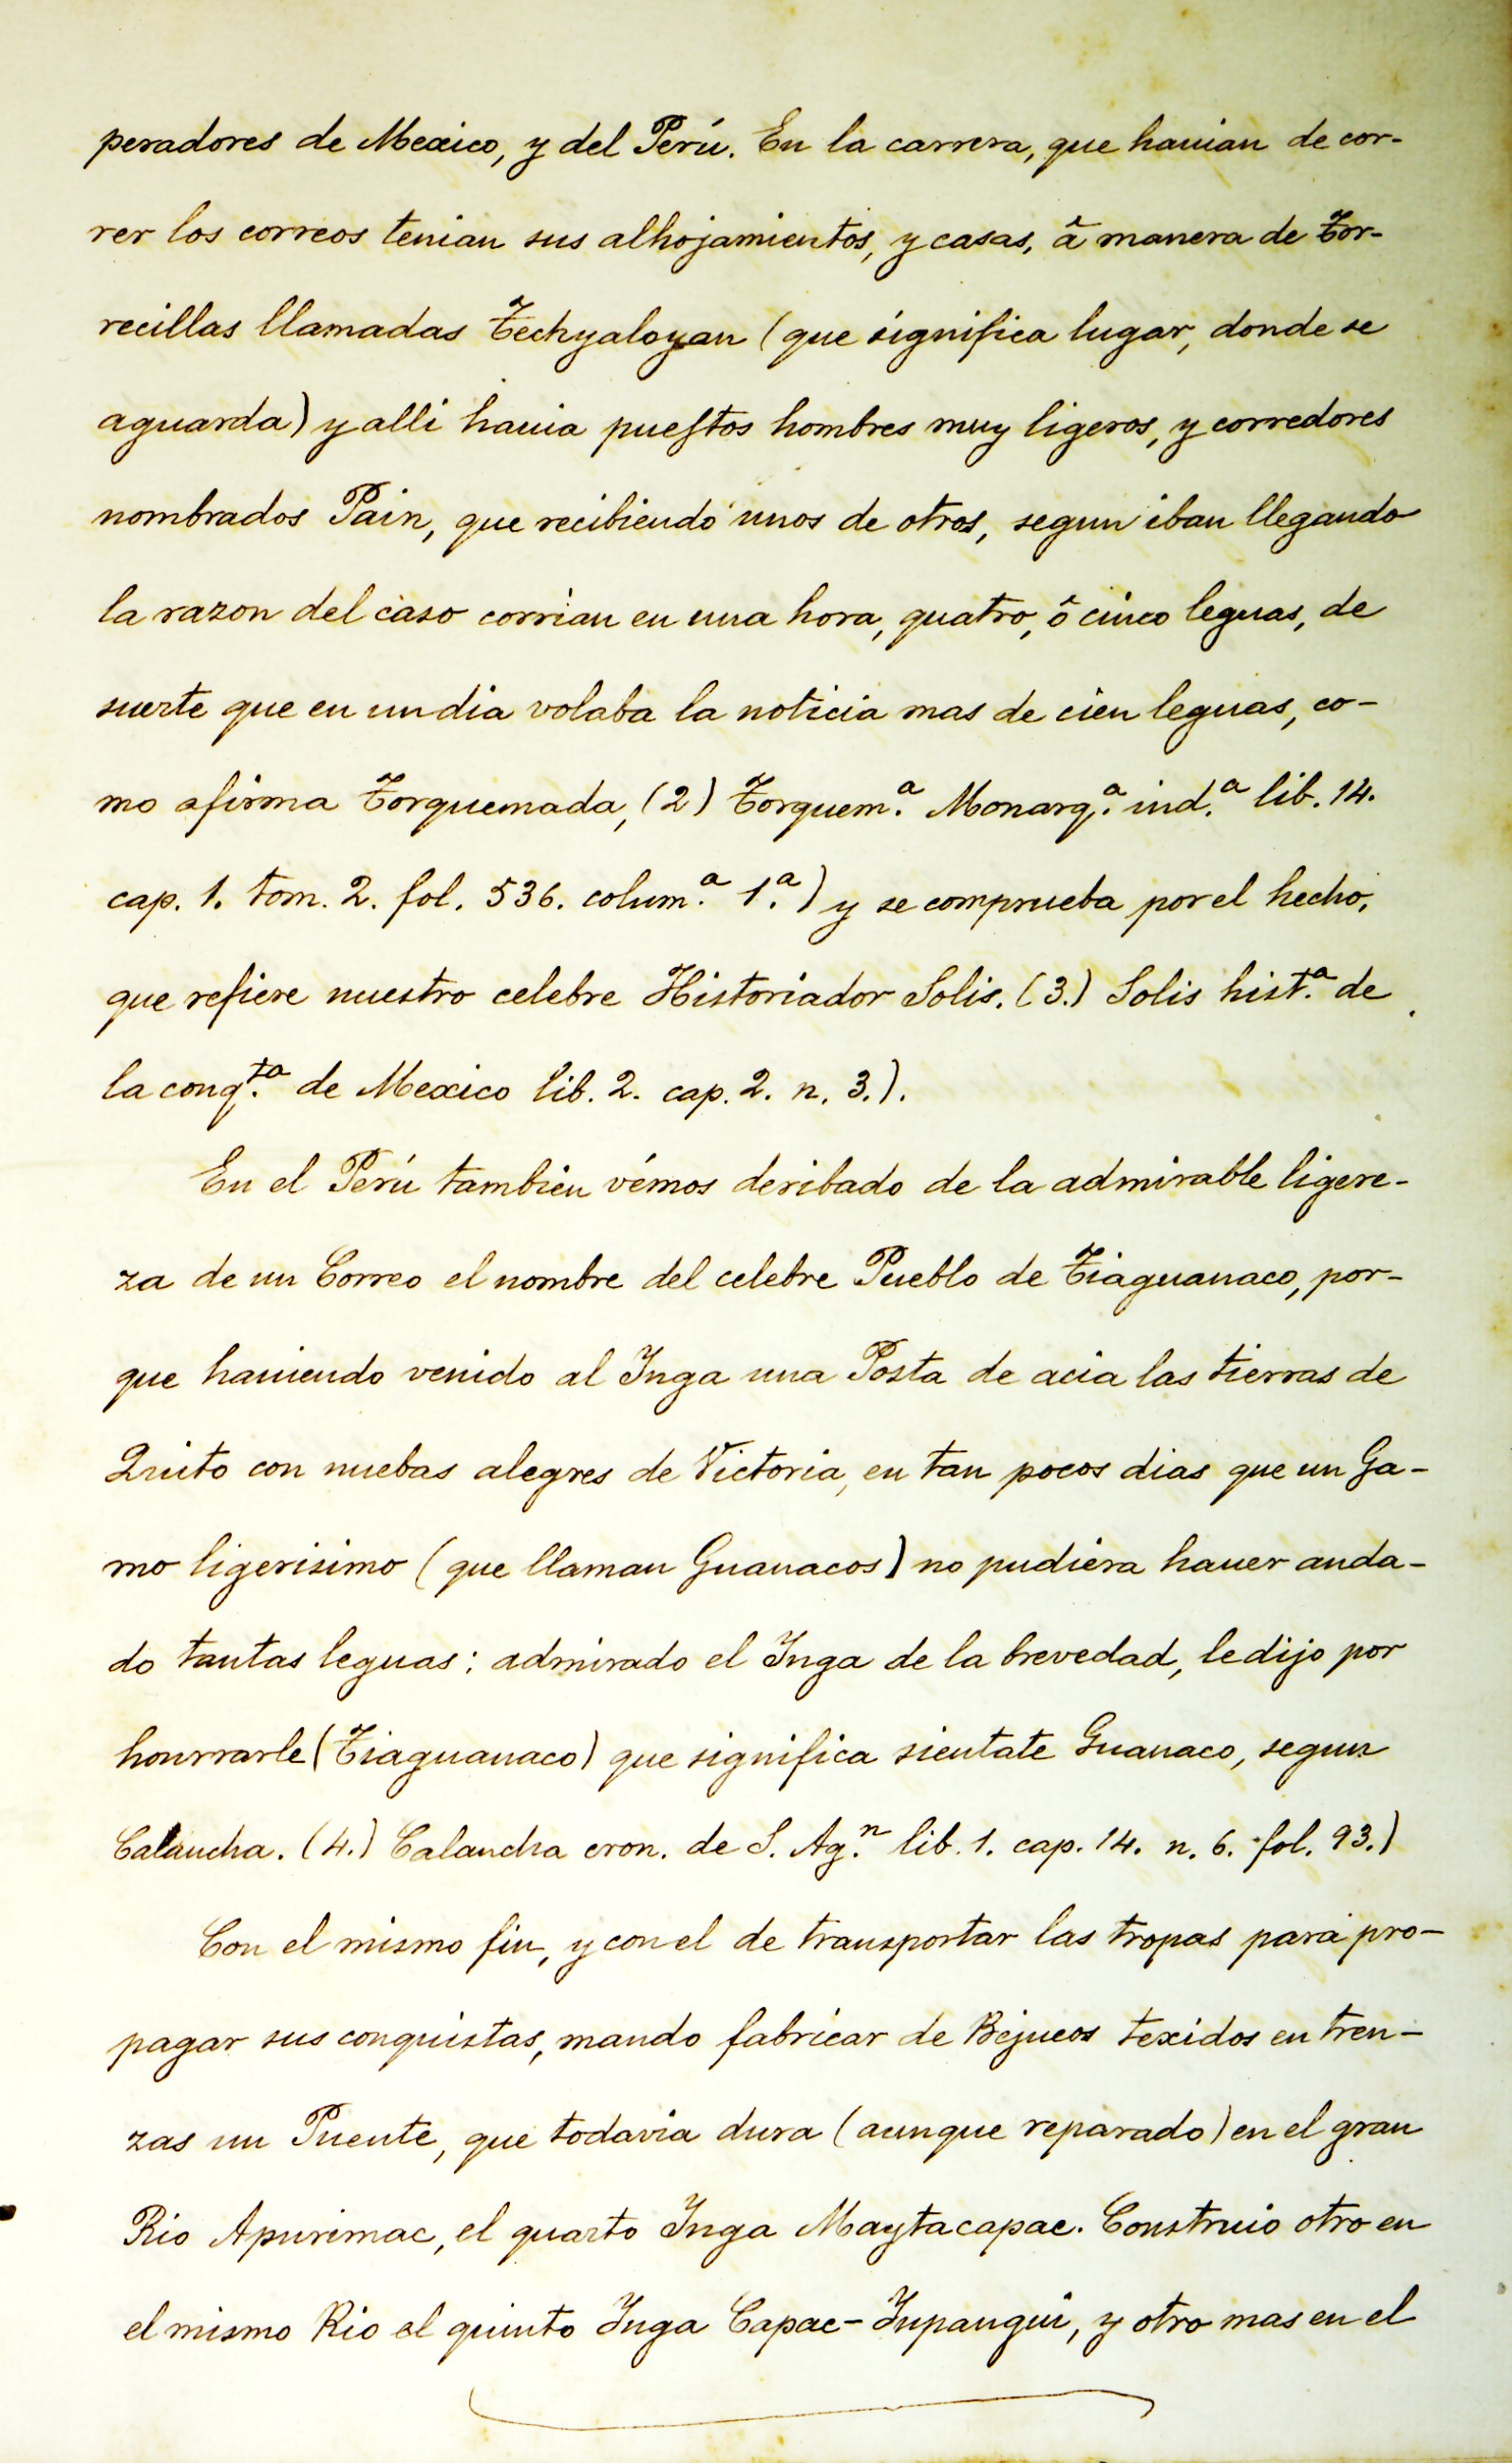 peradores de Mexico, y del Perú. En la carrera, que hauian de cor-
rer los correos tenian sus alhojamientos, y casas, â manera de Tor-
recillas llamadas Techyaloyan (que significa lugar, donde se
aguarda) y alli hauia pueſtos hombres muy ligeros, y corredores
nombrados Pain, que recibiendo unos de otros, segun iban llegando
la razon del caso corrian en una hora, quatro, ô cinco leguas, de
suerte que en un dia volaba la noticia mas de cien leguas, co-
mo afirma Torquemada, (2) Torquem.ª Monarq.ª ind.ª lib. 14.
cap. 1. tom. 2. fol. 536. colum.ª 1.ª) y se comprueba por el hecho,
que refiere nuestro celebre Historiador Solis. (3.) Solis hist.ª de
la conq.ta de Mexico lib. 2. cap. 2. n. 3.).
En el Perú tambien vémos deribado de la admirable ligere-
za de un Correo el nombre del celebre Pueblo de Tiaguanaco, por-
que hauiendo venido al Inga una Posta de acia las tierras de
Quito con nuebas alegres de Victoria, en tan pocos dias que un Ga-
mo ligerisimo (que llaman Guanacos) no pudiera hauer anda-
do tantas leguas: admirado el Inga de la brevedad, le dijo por
honrrarle (Tiaguanaco) que significa sientate Guanaco, segun
Calaucha. (4.) Calancha cron. de S. Ag.n lib. 1. cap. 14. n. 6. fol. 93.)
Con el mismo fin, y con el de transportar las tropas para pro-
pagar sus conquistas, mando fabricar de Bejucos texidos en tren-
zas un Puente, que todavia dura (aunque reparado) en el gran
Rio Apurimac, el quarto Inga Maytacapac. Construio otro en
el mismo Rio el quinto Inga Capac-Iupangui, y otro mas en el